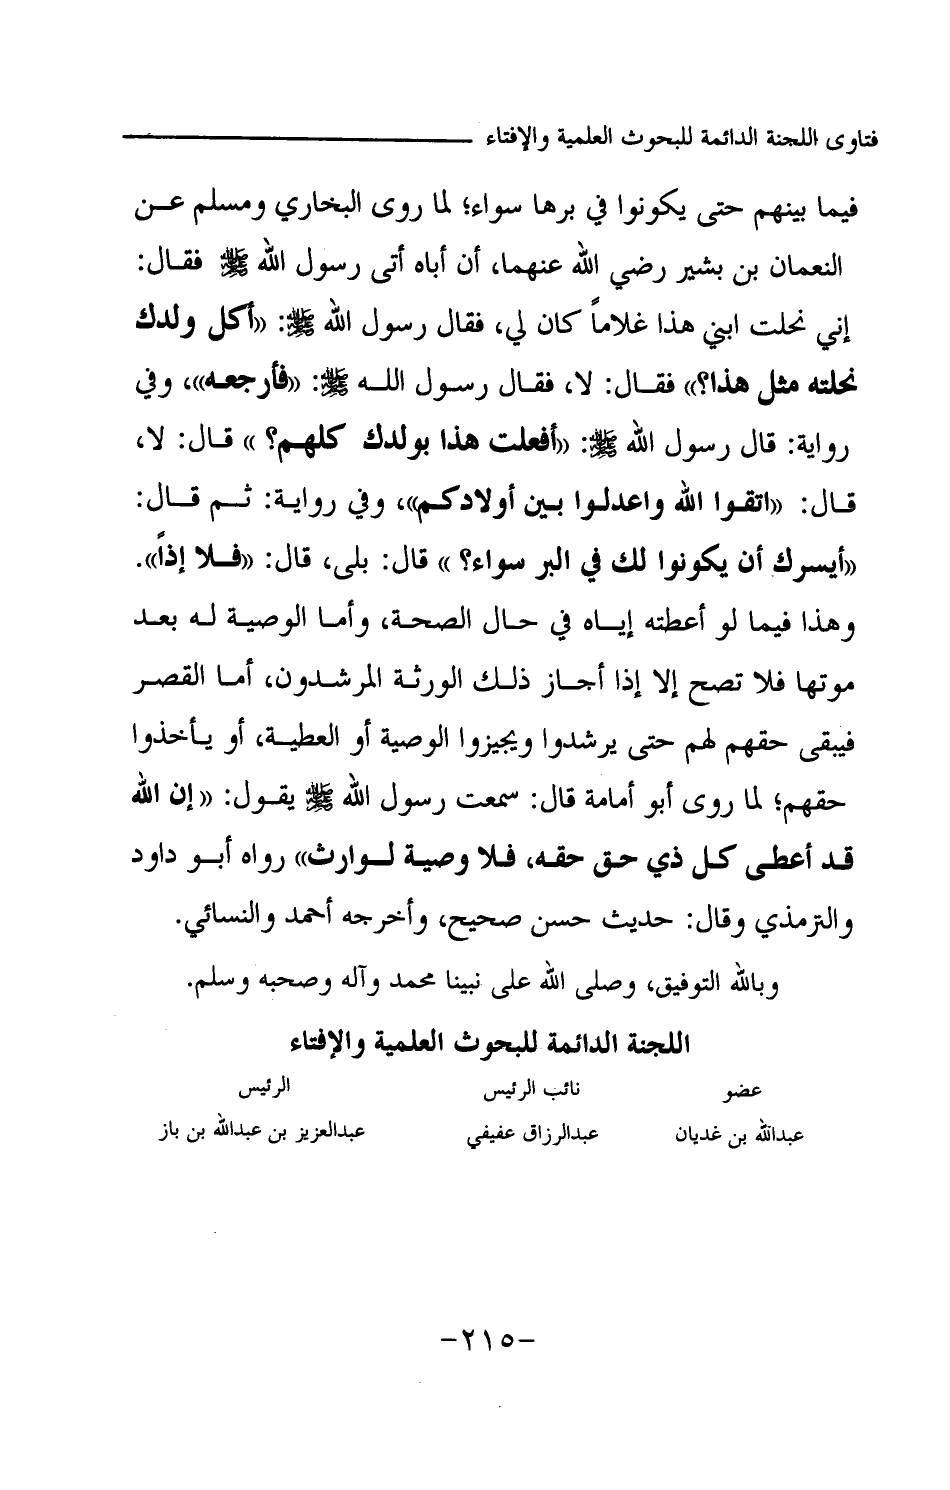 فتاوى اللجنة الدائمة للبحوث العلمية والإفتاء
فيما بينهم حتى يكونوا في برها سواء؛ لما روى البخاري ومسلم عن
النعمان بن بشير رضي الله عنهما، أن أباه أتى رسول الله ﷺ فقال:
إني نحلت ابني هذا غلاماً كان لي، فقال رسول الله ﷺ: «أكل ولدك
نحلته مثل هذا؟» فقال: لا، فقال رسول الله ﷺ: «فأرجعه»، وفي
رواية: قال رسول الله ﷺ: «أفعلت هذا بولدك كلهم؟ » قال: لا،
قال: «اتقوا الله واعدلوا بين أولادكم»، وفي رواية: ثم قال:
«أيسرك أن يكونوا لك في البر سواء؟ » قال: بلى، قال: «فلا إذاً».
وهذا فيما لو أعطته إياه في حال الصحة، وأما الوصية له بعد
موتها فلا تصح إلا إذا أجاز ذلك الورثة المرشدون، أما القصر
فيبقى حقهم لهم حتى يرشدوا ويجيزوا الوصية أو العطية، أو يأخذوا
حقهم؛ لما روى أبو أمامة قال: سمعت رسول الله ﷺ يقول: «إن الله
قد أعطى كل ذي حق حقه، فلا وصية لوارث» رواه أبو داود
والترمذي وقال: حديث حسن صحيح، وأخرجه أحمد والنسائي.
وبالله التوفيق، وصلى الله على نبينا محمد وآله وصحبه وسلم.
اللجنة الدائمة للبحوث العلمية والإفتاء
عضو نائب الرئيس الرئيس
عبدالله بن غديان عبدالرزاق عفيفي عبدالعزيز بن عبدالله بن باز
-٢١٥-